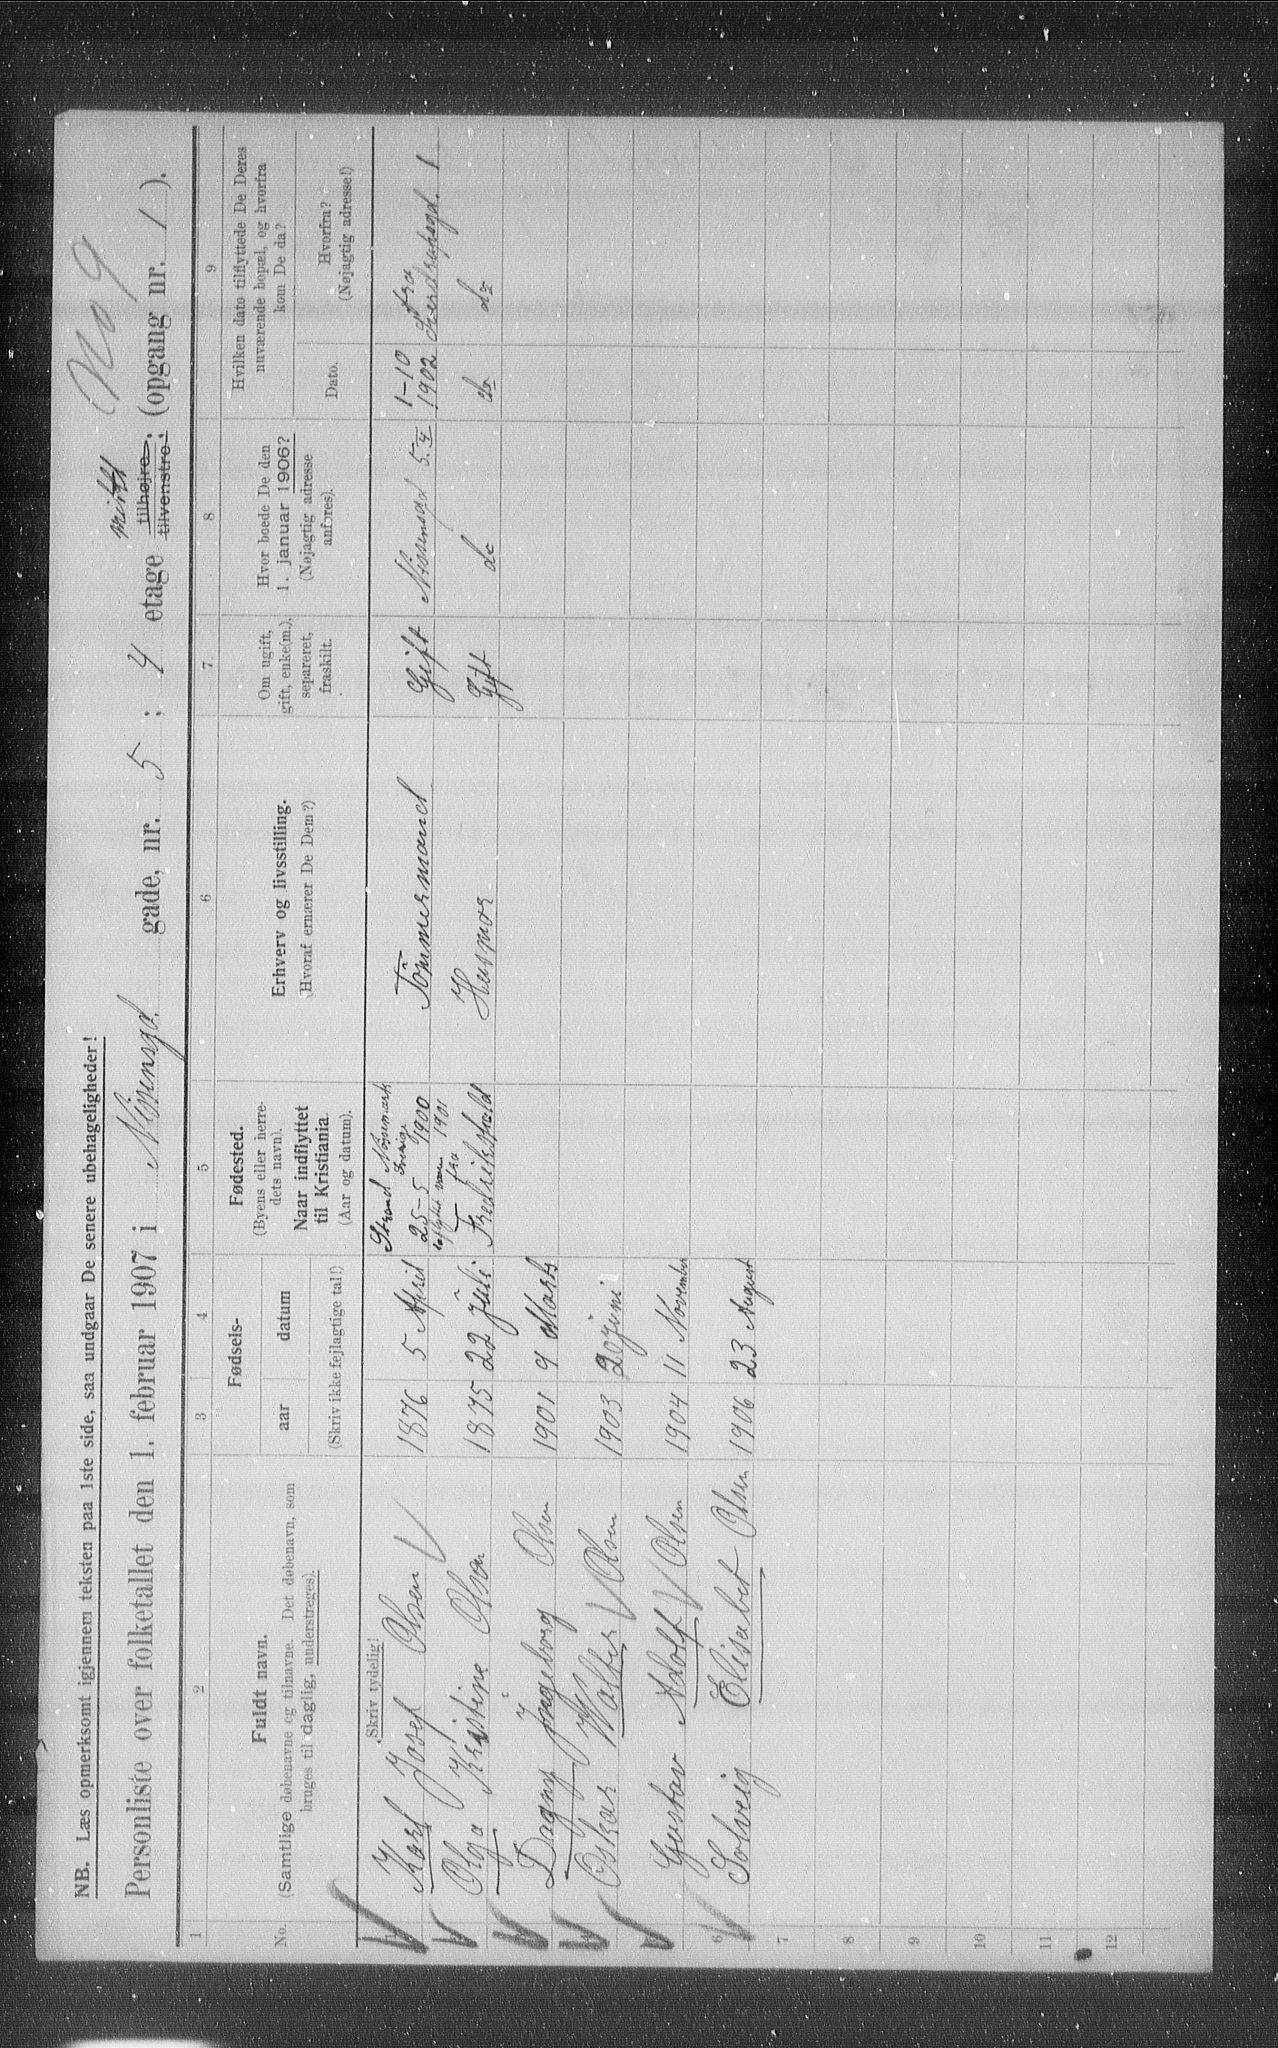 NB. Læs opmerksomt igjennem teksten paa 1ste side, saa undgaar De senere ubehageligheder!
No 9
Personliste over folketallet den 1. februar 1907 i Nissensgd. gade, nr. 5; 4 etage midt tilhøjre, tilvenstre, (opgang nr. 1).
1
2
3
4
5
6
7.
8
9
No.
Fuldt navn.
(Samtlige døbenavne og tilnavne. Det døbenavn, som
bruges til daglig, understreges).
Skriv tydelig!
Fødsels-
aar
datum
(Skriv ikke fejlagtige tal!)
Fødested.
(Byens eller herre-
dets navn).
Naar indflyttet
til Kristiania
(Aar og datum).
Erhverv og livsstilling.
(Hvoraf ernærer De Dem?)
Om ugift,
gift, enke(m.),
separeret,
fraskilt.
Hvor boede De den
1. januar 1906?
(Nøjagtig adresse
anføres).
Hvilken dato tilflyttede De Deres
nuværende bopæl, og hvorfra
kom De da?
Dato.
Hvorfra?
(Nøjagtig adresse!)
Karl Josef Olsen 1876 5 April Strand Nøssemark Sverige 25-5 1900 Tömmermand Gift Nissensgd 5. 4 1-10 1902 fra Sverdrupsgd. 1
Olga Kristine Olsen 1875 22 Juli 1901 fra Fredrikshald Husmor Gift do do do
Dagny Ingeborg Olsen 1901 9 Marts
Oskar Walter Olsen 1903 20 juni
Gustav Adolf Olsen 1904 11 November
6 Solveig Elisabet Olsen 1906 23 August
7
8
9
10
11
12